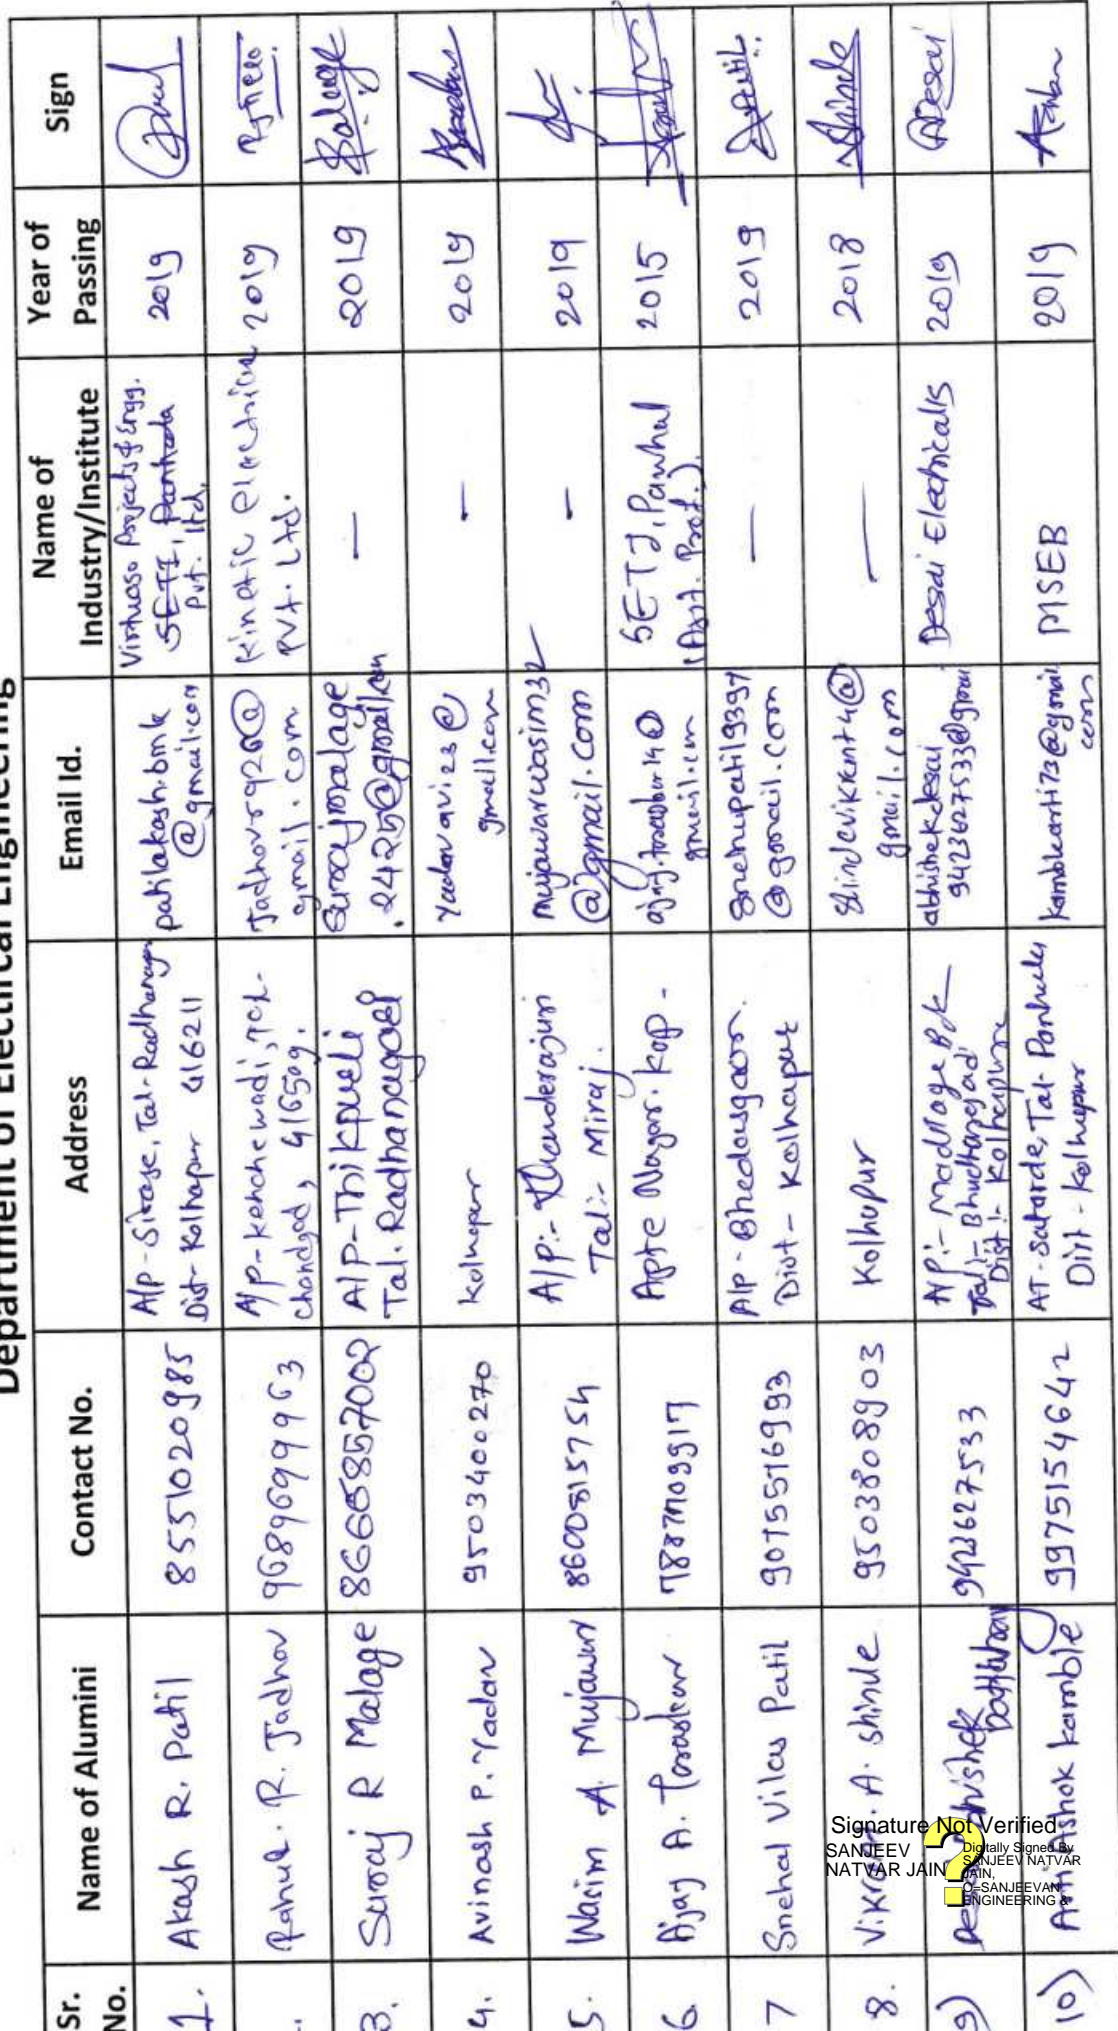 Department of Electrical Engineering
Sr. No.
Name of Alumini
Contact No.
Address
Email Id.
Name of Industry/Institute
Year of Passing
Sign
1.
Akash R. Patil
8551020985
A/P - Tal - Radhanagar
Dist - Kolhapur 416211
patilakashbmk
@gmail.com
Virtuoso Projects & Engg.
Pvt. ltd.
2019
Rahul. R. Jadhav
9689699963
A/P - Kenchewadi,
chandgad, 416509.
Jadhavrg26@
gmail.com
Kinetic electrical
PVt. Ltd.
2019
3.
Suraj R Malage
86665857002
A/P - Thikpurli
Tal. Radhanagari
Surajmalage
.2425@gmail.com
—
2019
4.
Avinash P. Yadav
9503400270
Kolhapur
Yadavavi.23@
gmail.com
—
2019
5.
Wasim A. Mujawar
8600815754
A/P:- Khanderajuri
Tal:- Miraj.
mujawarwasim32
@gmail.com
—
2019
6.
Ajay A.
7887709917
Apte Nagar. Kop -
gmail.com
SETI, Panhal
(Asst. Prof.)
2015
7
Snehal Vilas Patil
9075516993
A/P - Bhedasgaon.
Dist - Kolhapur
Snehupatil9397
@gmail.com
—
2019
8.
Vikrant. A. shinde
9503808903
Kolhapur
Shindevikrant4@
gmail.com
—
2018
9)
Desai Abhishek
Dattatray
9423627533
A/P:- Madilage Bk
Tal:- Bhudhargad
Dist:- Kolhapur
abhishekdesai
9423627533@gmai
Desai Electricals
2019
Desai
10)
Arti Ashok kamble
9975154642
AT - Satarde, Tal - Panhala
Dist - Kolhapur
kamblearti73@gmail.
com
MSEB
2019
Signature Not Verified
SANJEEV
NATVAR JAIN
Digitally Signed By
SANJEEV NATVAR
JAIN,
O=SANJEEVAN
ENGINEERING &